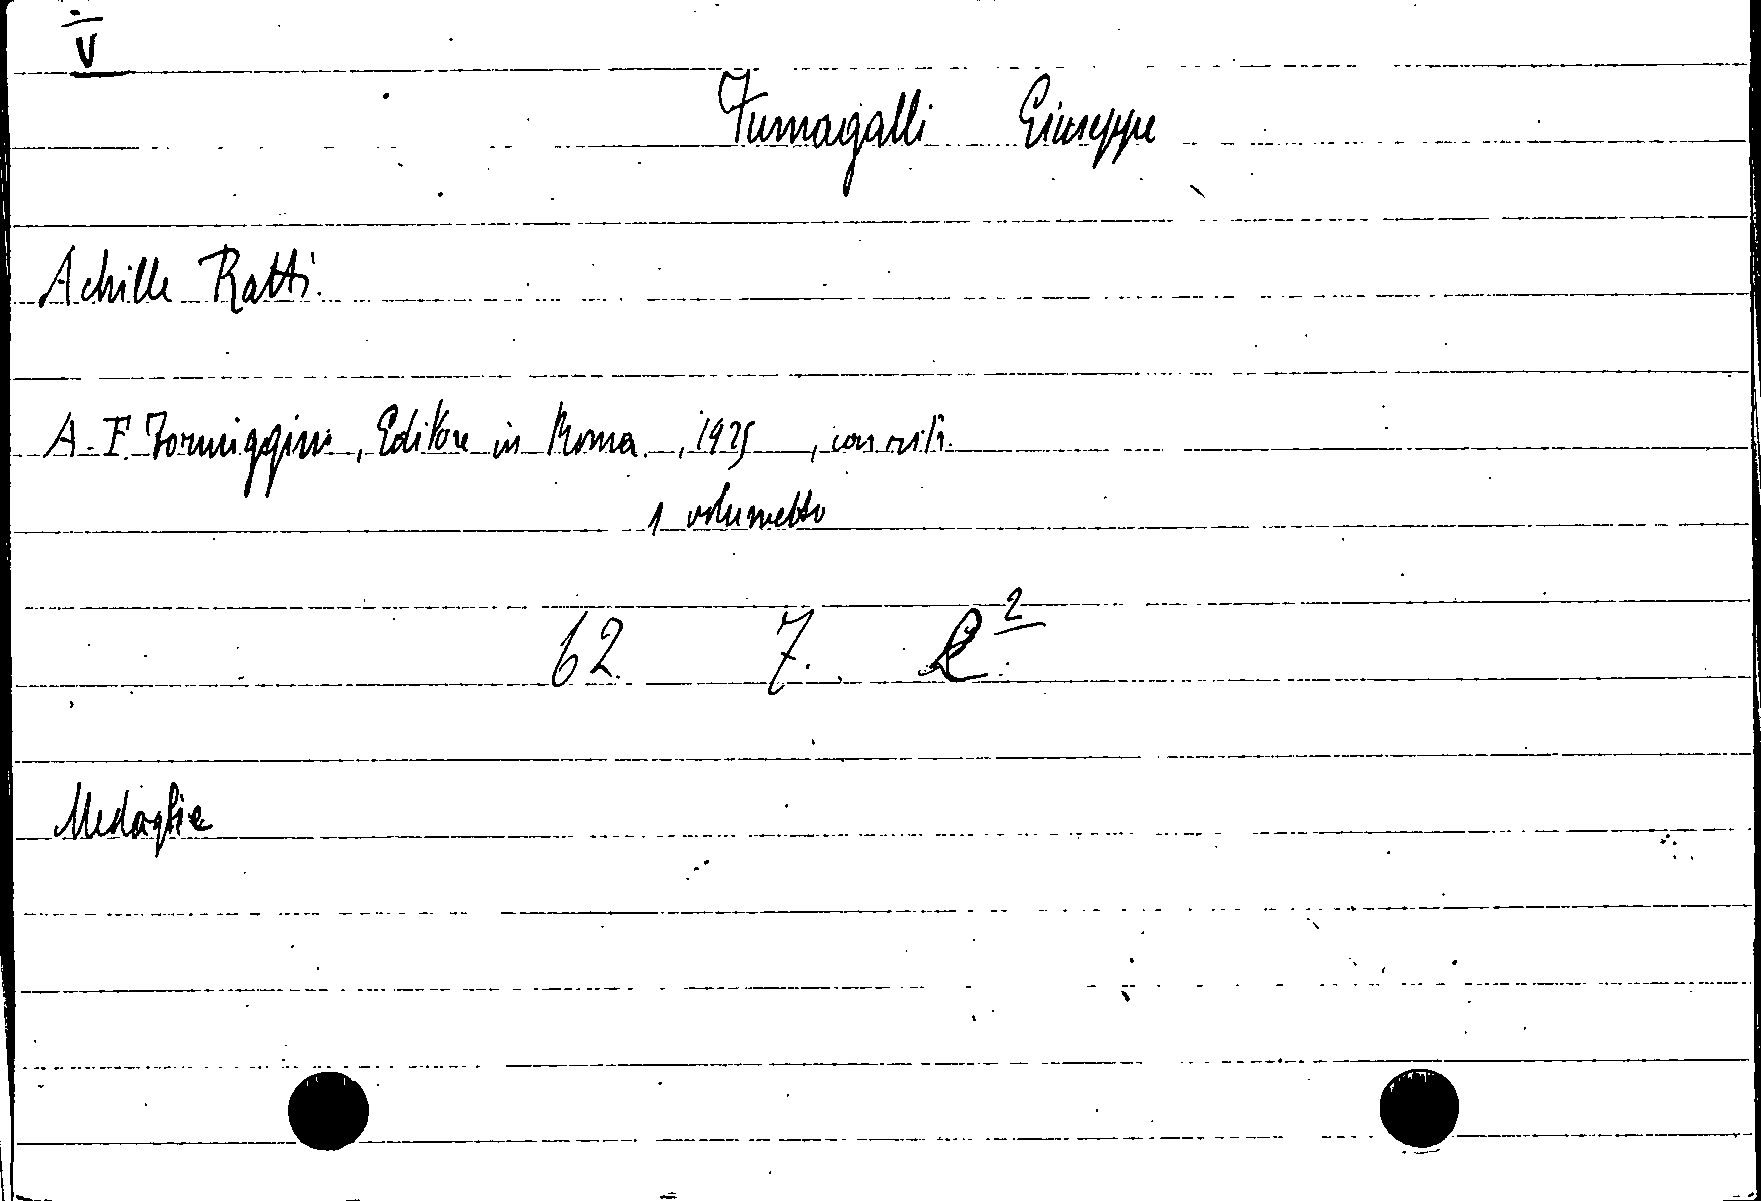 V
Fumagalli Giuseppe
Achille Ratti.
A. F. Formiggini, Editore in Roma, 1925, con ritr.
1 volumetto
62. 7. 2
Medaglie